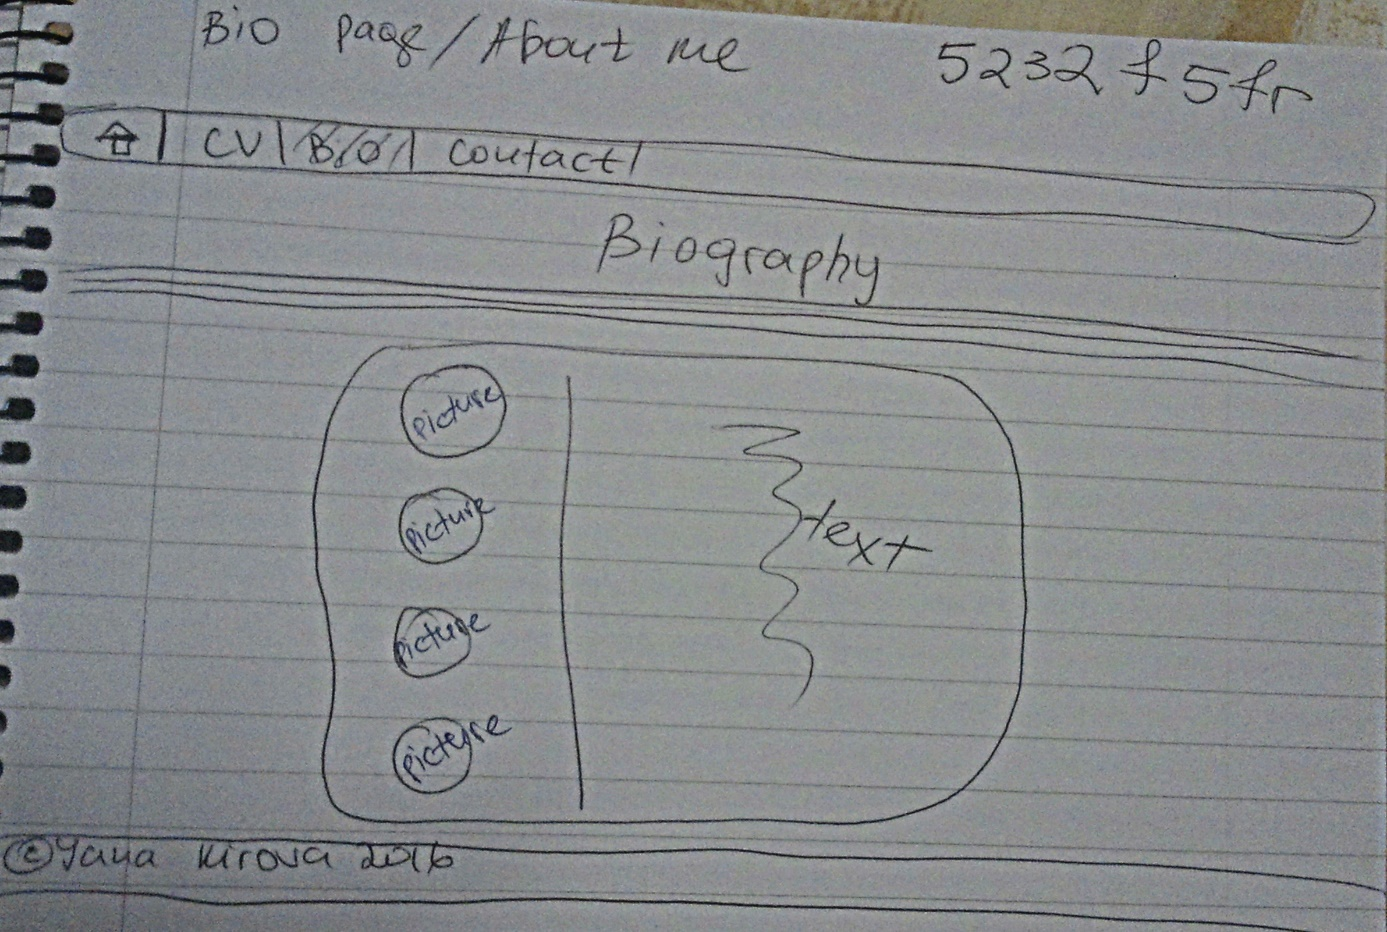 Bio page/About me 5232f5fr
CV | BIO | Contact |
Biography
picture
picture
picture
picture
text
©Yana Kirova 2016